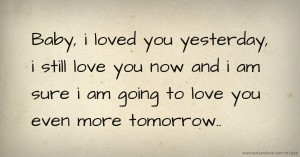 Baby, i loved you yesterday,
i still love you now and i am
sure i am going to love you
even more tomorrow..